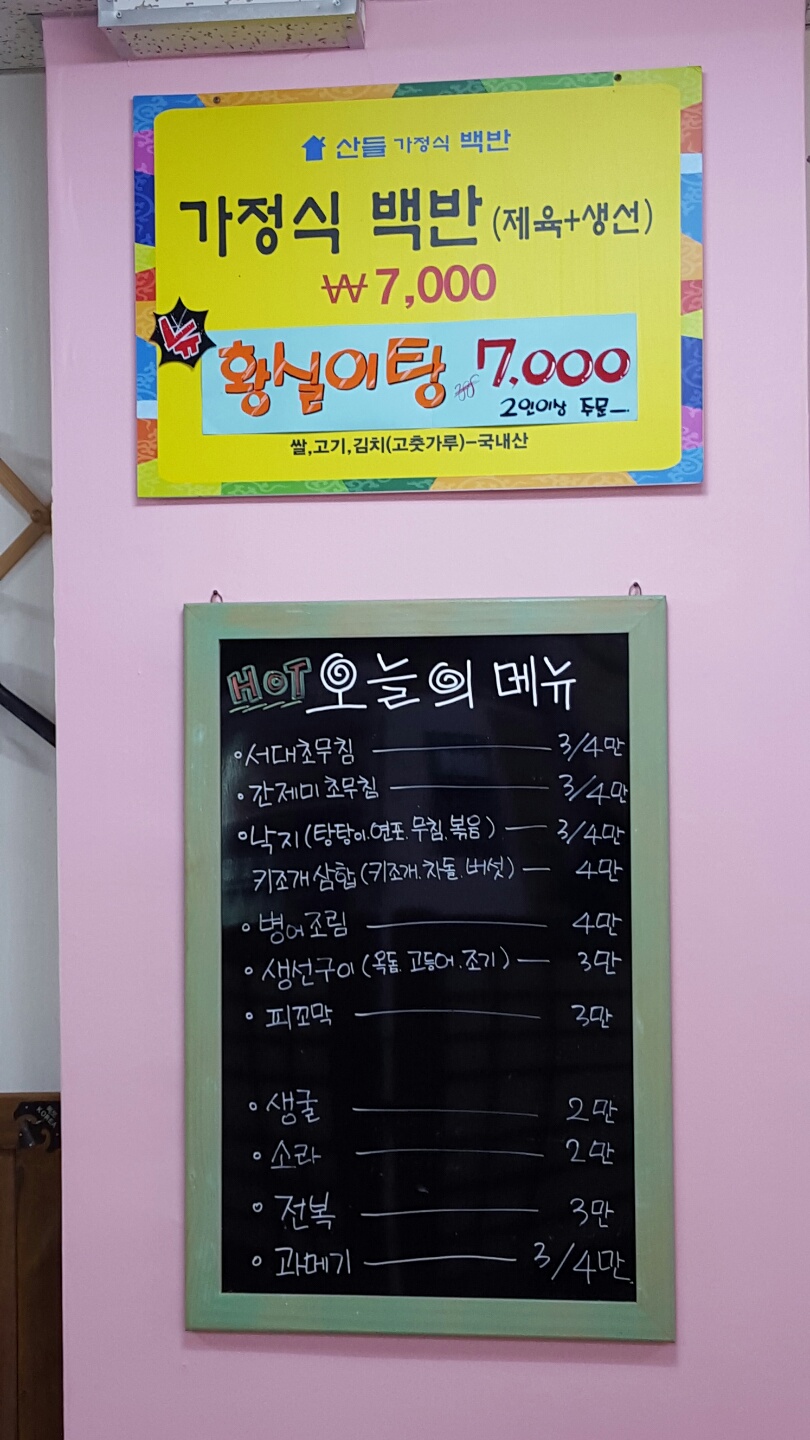 산들 가정식 백반
가정식 백반 (제육+생선)
₩7,000
뉴
황실이탕 7,000
2인이상 주문
쌀,고기,김치(고춧가루)-국내산
HOT 오늘의 메뉴
서대초무침 3/4만
간제미초무침 3/4만
낙지(탕탕이.연포.무침.볶음) 3/4만
키조개삼합(키조개.차돌.버섯) 4만
병어조림 4만
생선구이(옥돔.고등어.조기) 3만
피꼬막 3만
생굴 2만
소라 2만
전복 3만
과메기 3/4만
KOREA